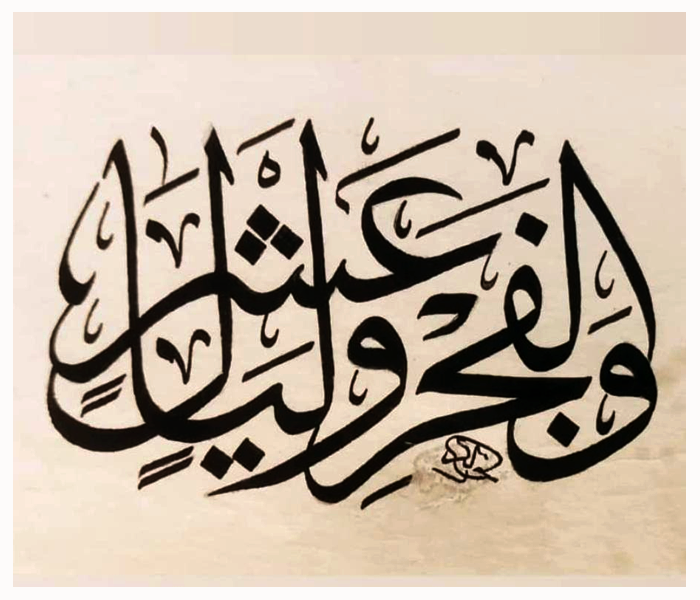 وَالْفَجْرِ وَلَيَالٍ عَشْرٍ